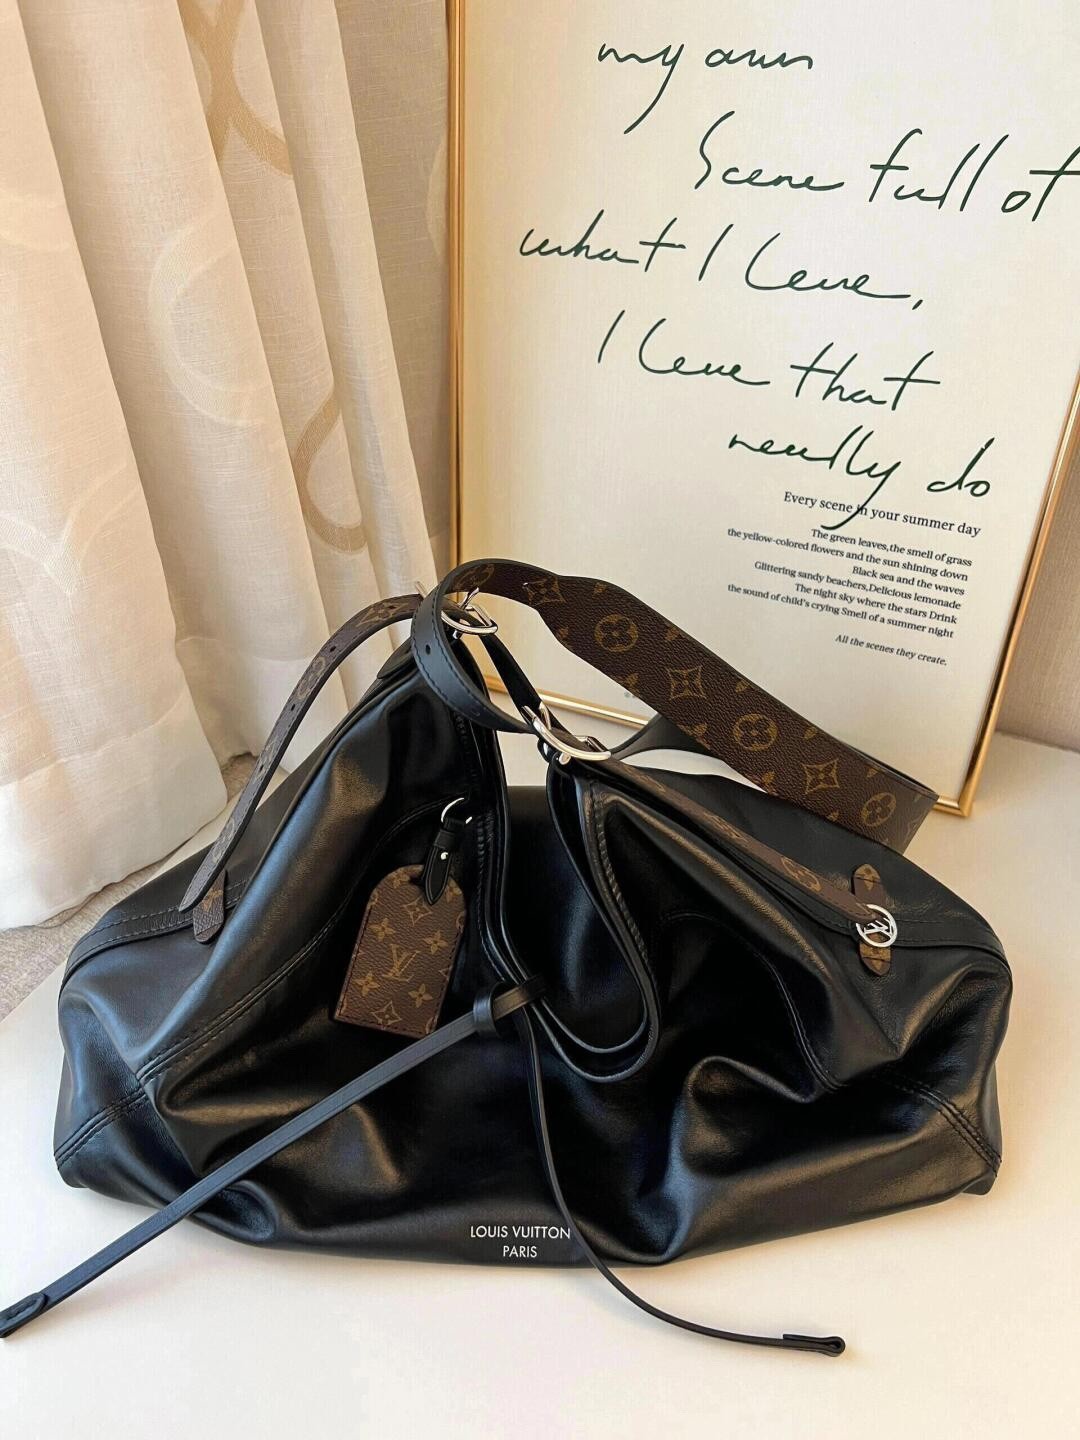 my own
Scene full of
what I love,
I love that
really do
Every scene in your summer day
The green leaves,the smell of grass
the yellow-colored flowers and the sun shining down
Black sea and the waves
Glittering sandy beachers,Delicious lemonade
The night sky where the stars Drink
the sound of child's crying Smell of a summer night
All the scenes they create.
LOUIS VUITTON
PARIS